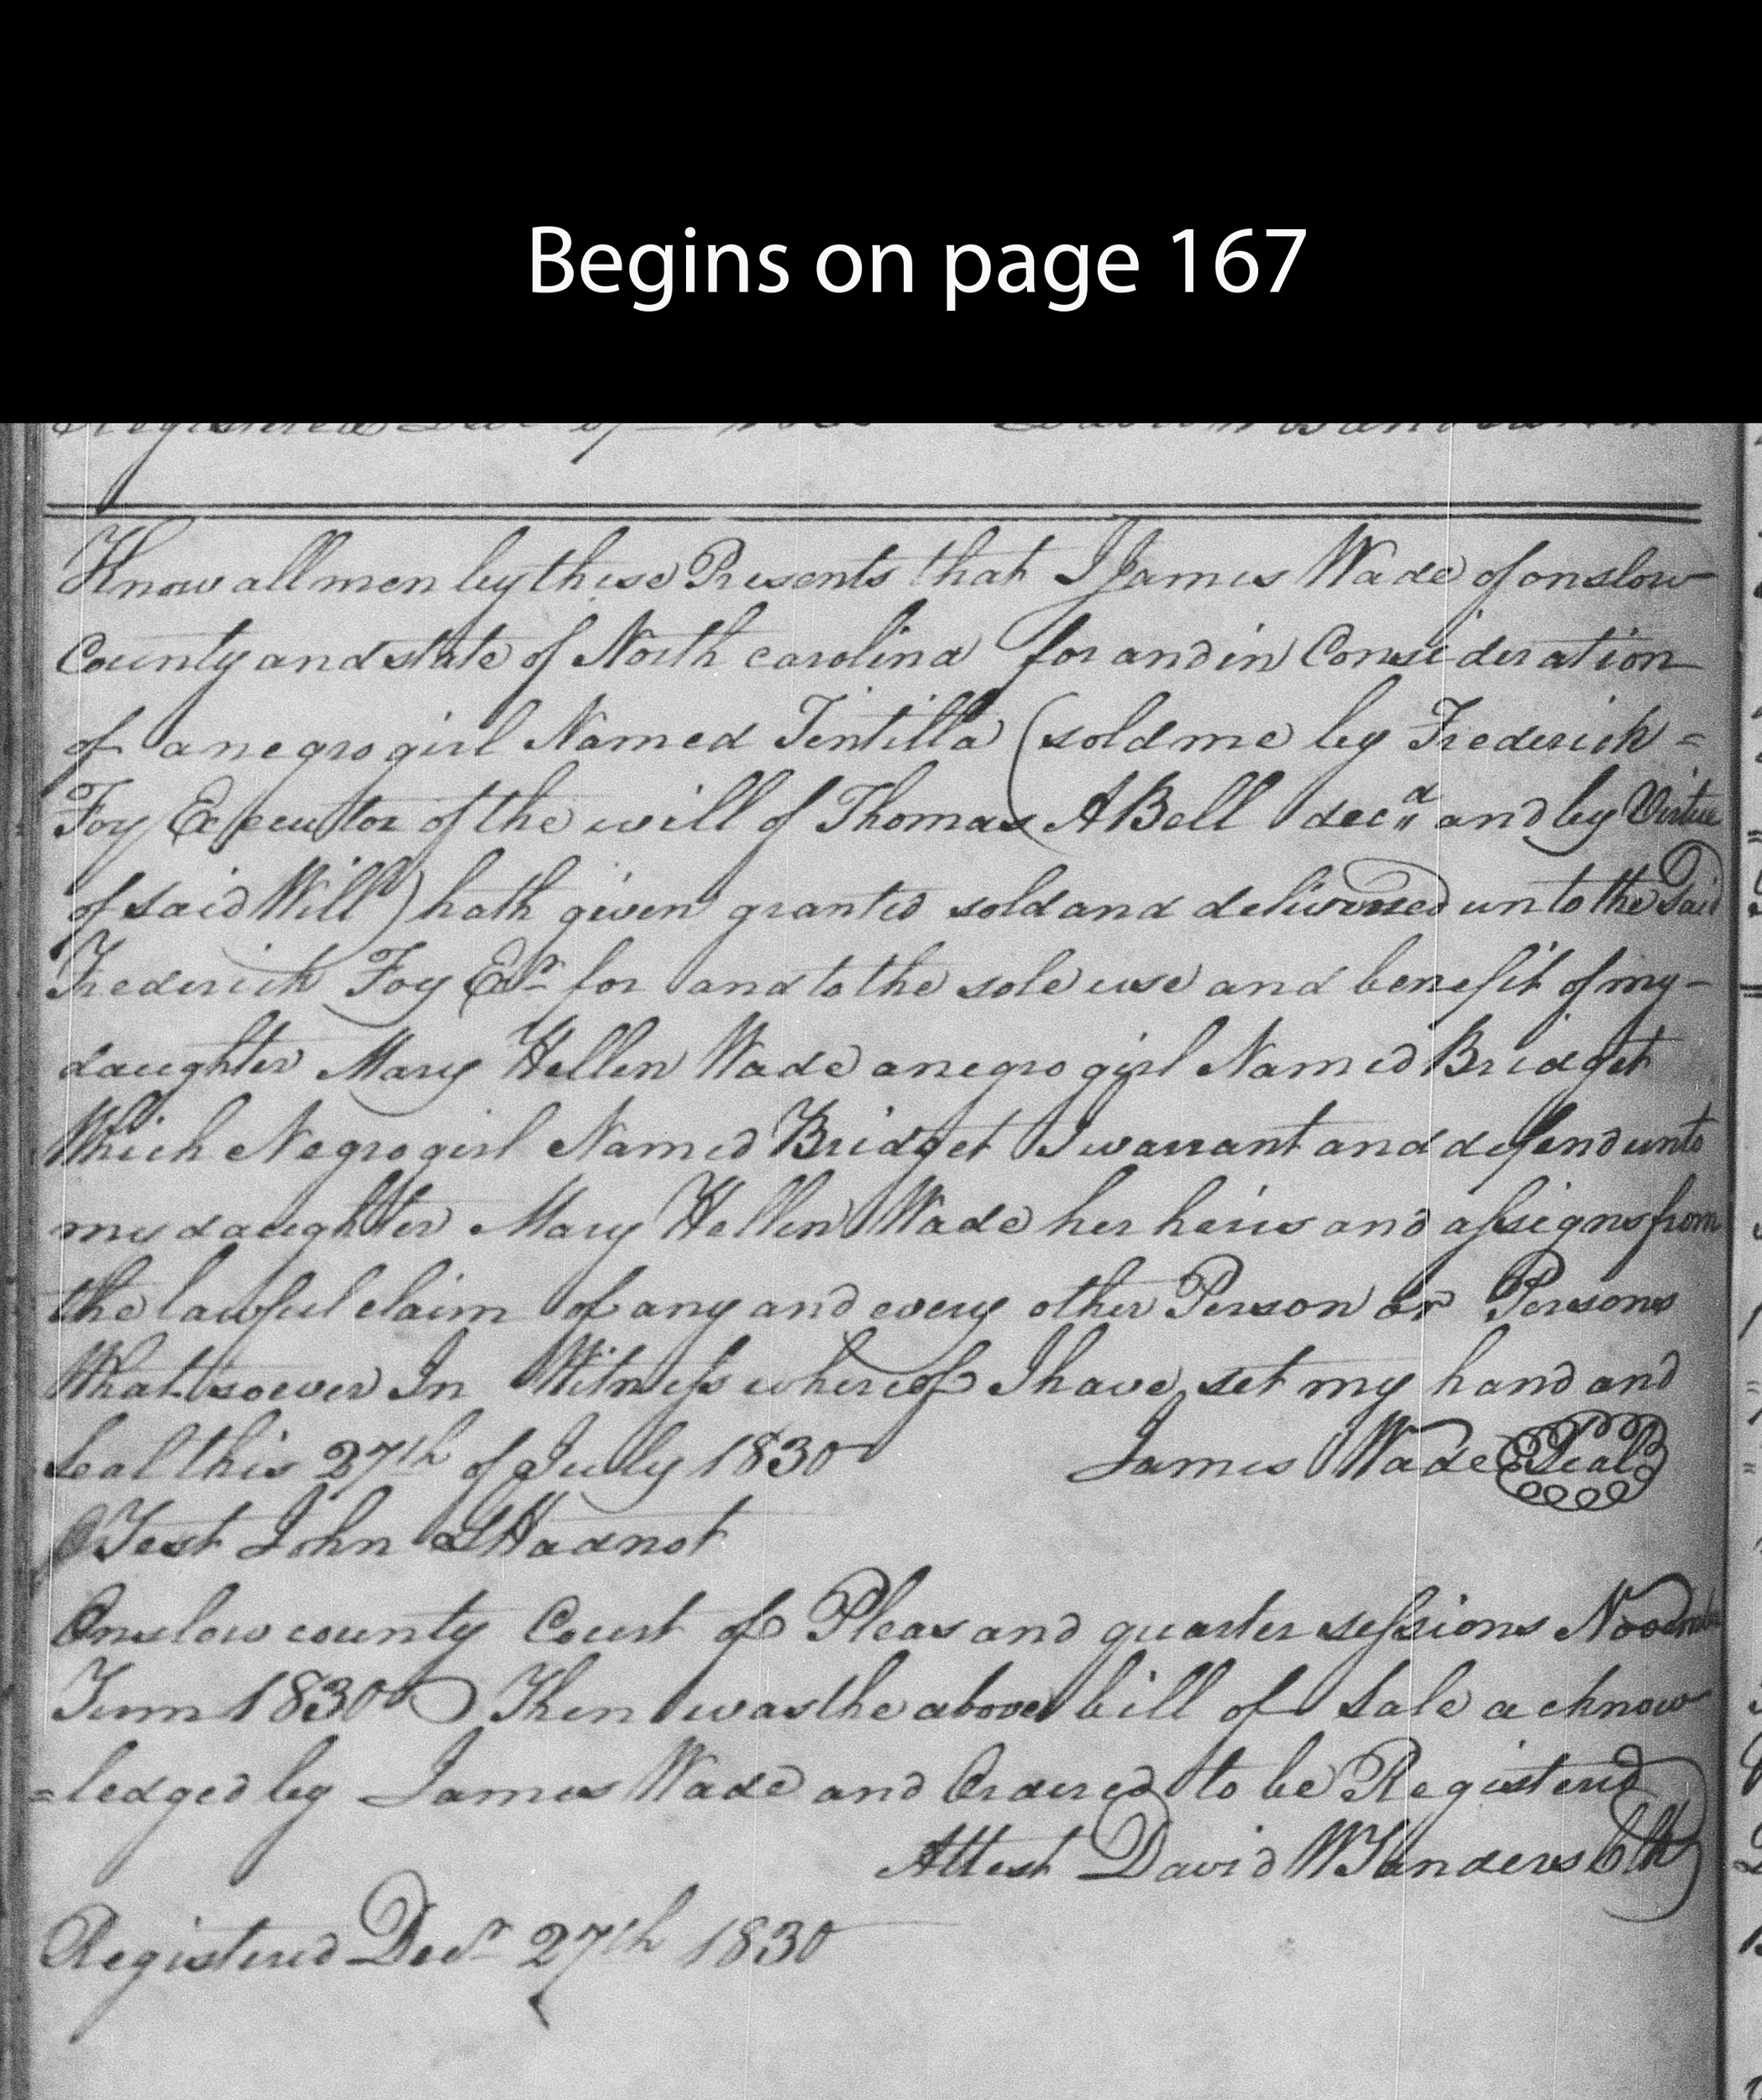 Begins on page 167
Know all men by these Presents that I James Wade of onslow
County and state of North carolina for and in Consideration
of a negro girl Named Tentilla (sold me by Frederick =
Foy Executor of the will of Thomas A Bell decd and by Virtue
of said Will) hath given granted sold and delivered unto the Said
Frederick Foy Exr for and to the sole use and benefit of my -
daughter Mary Hellen Wade a negro girl Named Bridget
Which Negro girl Named Bridget I warrant and defend unto
my daughter Mary Hellen Wade her heirs and assigns from
the lawful claim of any and every other Person or Persons
Whatsoever In Witness whereof I have set my hand and
Seal this 27th of July 1830 James Wade Seal
Test John Hadnot
Onslow county Court of Pleas and quarter sessions
Term 1830 Then was the above bill of Sale acknow
=ledged by James Wade and Ordered to be Registered
Attest David W Sanders Clk
Registered Decr 27th 1830